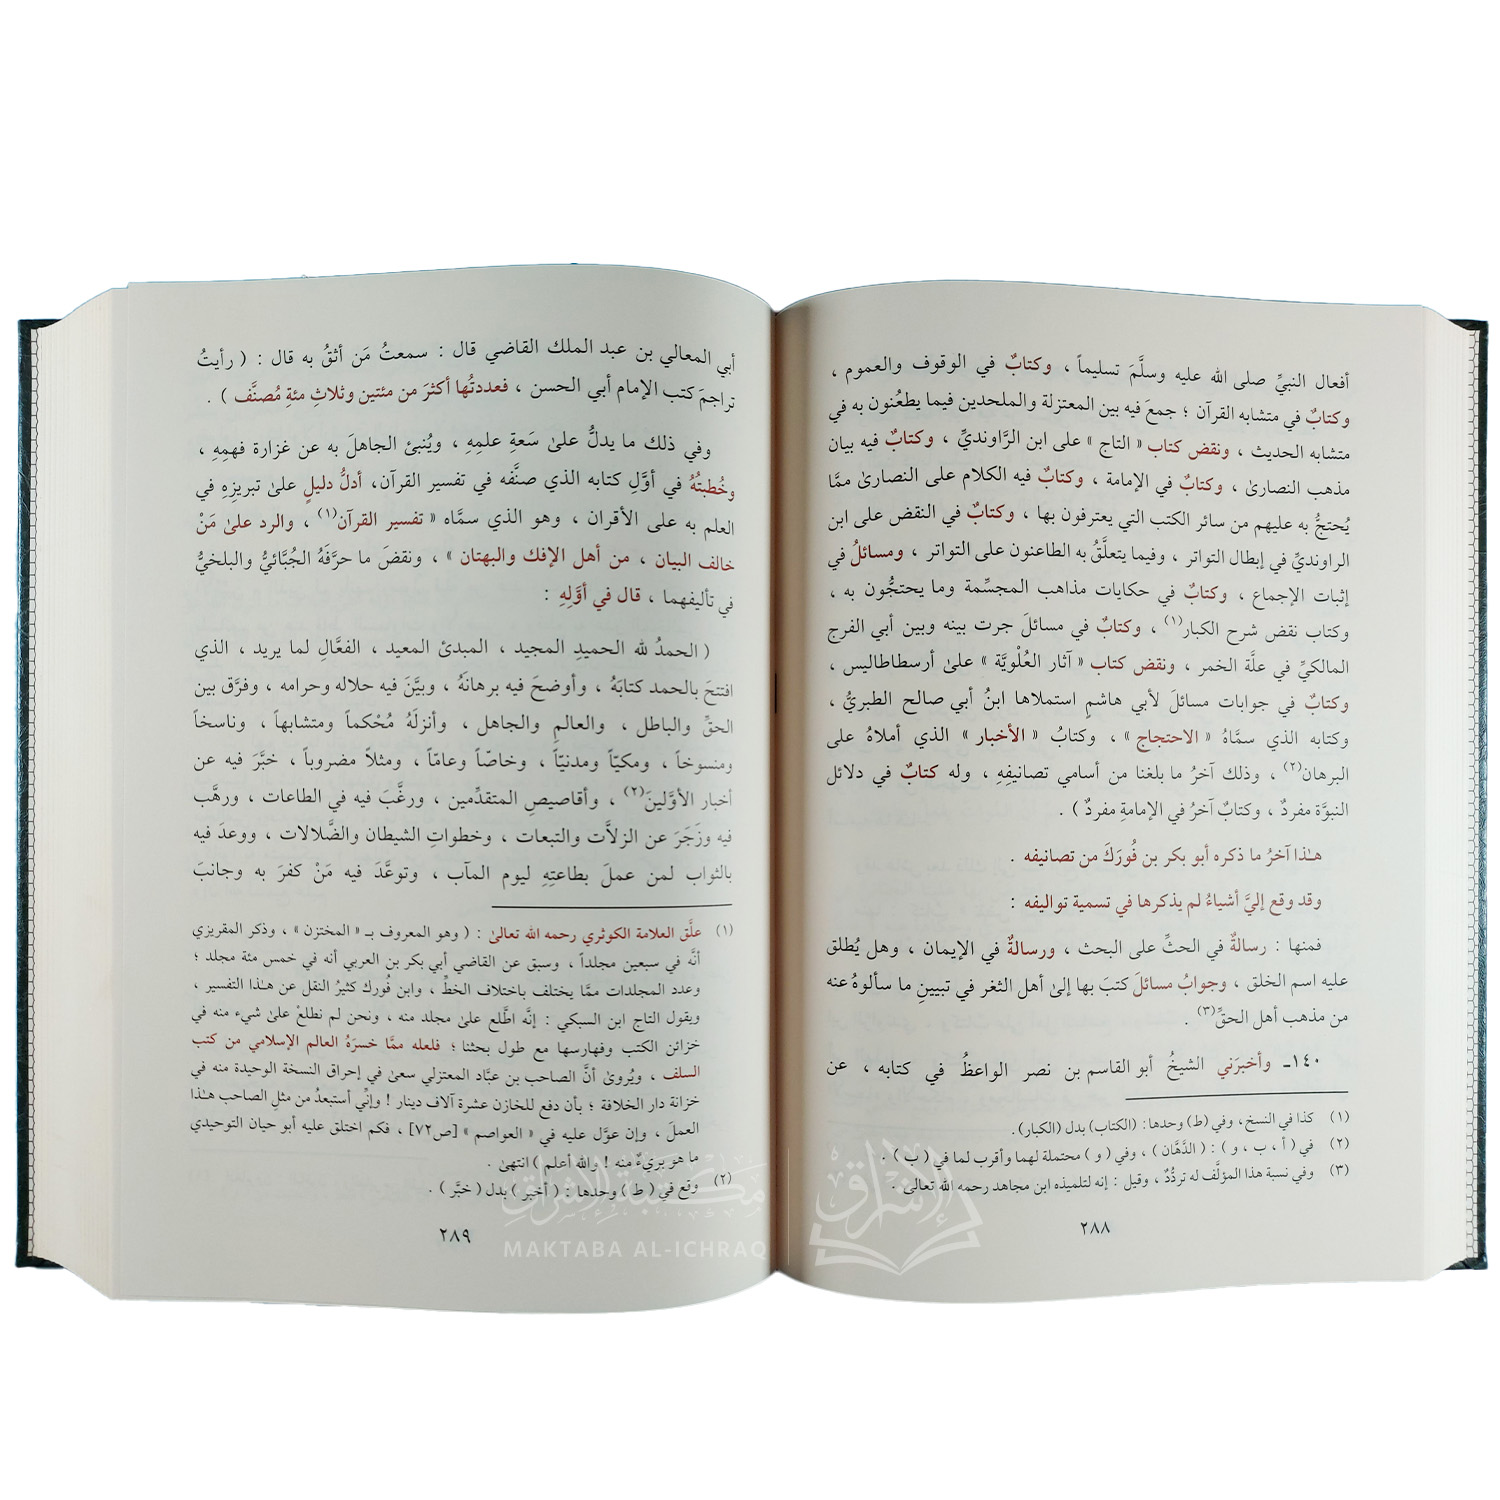 أفعال النبيِّ صلى الله عليه وسلَّمَ تسليماً ، وكتابٌ في الوقوف والعموم ،
وكتابٌ في متشابه القرآن ؛ جمعَ فيه بين المعتزلة والملحدين فيما يطعُنون به في
متشابه الحديث ، ونقض كتاب « التاج » على ابن الرَّاونديِّ ، وكتابٌ فيه بيان
مذهب النصارىٰ ، وكتابٌ في الإمامة ، وكتابٌ فيه الكلام على النصارىٰ ممَّا
يُحتجُّ به عليهم من سائر الكتب التي يعترفون بها ، وكتابٌ في النقض على ابن
الراونديِّ في إبطال التواتر ، وفيما يتعلَّقُ به الطاعنون على التواتر ، ومسائلُ في
إثبات الإجماع ، وكتابٌ في حكايات مذاهب المجسِّمة وما يحتجُّون به ،
وكتاب نقض شرح الكبار(١) ، وكتابٌ في مسائلَ جرت بينه وبين أبي الفرج
المالكيِّ في علَّة الخمر ، ونقض كتاب « آثار العُلْويَّة » علىٰ أرسطاطاليس ،
وكتابٌ في جوابات مسائلَ لأبي هاشمٍ استملاها ابنُ أبي صالح الطبريُّ ،
وكتابه الذي سمَّاهُ « الاحتجاج » ، وكتابُ « الأخبار » الذي أملاهُ على
البرهان(٢) ، وذلك آخرُ ما بلغنا من أسامي تصانيفِهِ ، وله كتابٌ في دلائل
النبوَّة مفردٌ ، وكتابٌ آخرُ في الإمامةِ مفردٌ ) .
هـٰذا آخرُ ما ذكره أبو بكر بن فُورَكَ من تصانيفه .
وقد وقع إليَّ أشياءُ لم يذكرها في تسمية تواليفه :
فمنها : رسالةٌ في الحثِّ على البحث ، ورسالةٌ في الإيمان ، وهل يُطلق
عليه اسم الخلق ، وجوابُ مسائلَ كتبَ بها إلىٰ أهل الثغر في تبيينِ ما سألوهُ عنه
من مذهب أهل الحقِّ(٣) .
١٤٠ـ وأخبرَني الشيخُ أبو القاسم بن نصر الواعظُ في كتابه ، عن
(١) كذا في النسخ، وفي (ط) وحدها: (الكتاب) بدل (الكبار).
(٢) في ( أ ، ب ، و ) : ( الدَّهَّان ) ، وفي ( و ) محتملة لهما وأقرب لما في ( ب ) .
(٣) وفي نسبة هذا المؤلَّف له تردُّدٌ ، وقيل : إنه لتلميذه ابن مجاهد رحمه الله تعالىٰ .
٢٨٨
أبي المعالي بن عبد الملك القاضي قال : سمعتُ مَن أثقُ به قال : ( رأيتُ
تراجمَ كتب الإمام أبي الحسن ، فعددتُها أكثرَ من مئتين وثلاثِ مئةِ مُصنَّف ) .
وفي ذلك ما يدلُّ علىٰ سَعةِ علمِهِ ، ويُنبئ الجاهلَ به عن غزارة فهمِهِ ،
وخُطبتُهُ في أوَّلِ كتابه الذي صنَّفه في تفسير القرآن، أدلُّ دليلٍ علىٰ تبريزِهِ في
العلم به على الأقران ، وهو الذي سمَّاه « تفسير القرآن(١) ، والرد علىٰ مَنْ
خالف البيان ، من أهل الإفك والبهتان » ، ونقضَ ما حرَّفَهُ الجُبَّائيُّ والبلخيُّ
في تأليفهما ، قال في أوَّلِهِ :
( الحمدُ لله الحميدِ المجيد ، المبدئ المعيد ، الفعَّالِ لما يريد ، الذي
افتتحَ بالحمد كتابَهُ ، وأوضحَ فيه برهانَهُ ، وبيَّنَ فيه حلاله وحرامه ، وفرَّق بين
الحقِّ والباطل ، والعالمِ والجاهل ، وأنزلَهُ مُحْكماً ومتشابهاً ، وناسخاً
ومنسوخاً ، ومكيّاً ومدنيّاً ، وخاصّاً وعامّاً ، ومثلاً مضروباً ، خبَّرَ فيه عن
أخبار الأوَّلينَ(٢) ، وأقاصيصِ المتقدِّمين ، ورغَّبَ فيه في الطاعات ، ورهَّب
فيه وزَجَرَ عن الزلاَّت والتبعات ، وخطواتِ الشيطان والضَّلالات ، ووعدَ فيه
بالثواب لمن عملَ بطاعتِهِ ليوم المآب ، وتوعَّدَ فيه مَنْ كفرَ به وجانبَ
(١) علَّق العلامة الكوثري رحمه الله تعالىٰ : ( وهو المعروف بـ « المختزن » ، وذكر المقريزي
أنَّه في سبعين مجلداً ، وسبق عن القاضي أبي بكر بن العربي أنه في خمس مئة مجلد ؛
وعدد المجلدات ممَّا يختلف باختلاف الخطِّ ، وابن فُورك كثيرُ النقل عن هـٰذا التفسير ،
ويقول التاج ابن السبكي : إنَّه اطَّلع علىٰ مجلد منه ، ونحن لم نطلعْ علىٰ شيء منه في
خزائن الكتب وفهارسها مع طول بحثنا ؛ فلعله ممَّا خسرَهُ العالم الإسلامي من كتب
السلف ، ويُروىٰ أنَّ الصاحب بن عبَّاد المعتزلي سعىٰ في إحراق النسخة الوحيدة منه في
خزانة دار الخلافة ؛ بأن دفع للخازن عشرة آلاف دينار ! وإنِّي أستبعدُ من مثلِ الصاحب هـٰذا
العملَ ، وإن عوَّل عليه في « العواصم » [ص٧٢] ، فكم اختلق عليه أبو حيان التوحيدي
ما هو بريءٌ منه ! والله أعلم ) انتهىٰ .
(٢) وقع في ( ط ) وحدها : ( أخبر ) بدل ( خبَّر ) .
٢٨٩
مكتبة الإشراق
MAKTABA AL-ICHRAQ
الإشراق